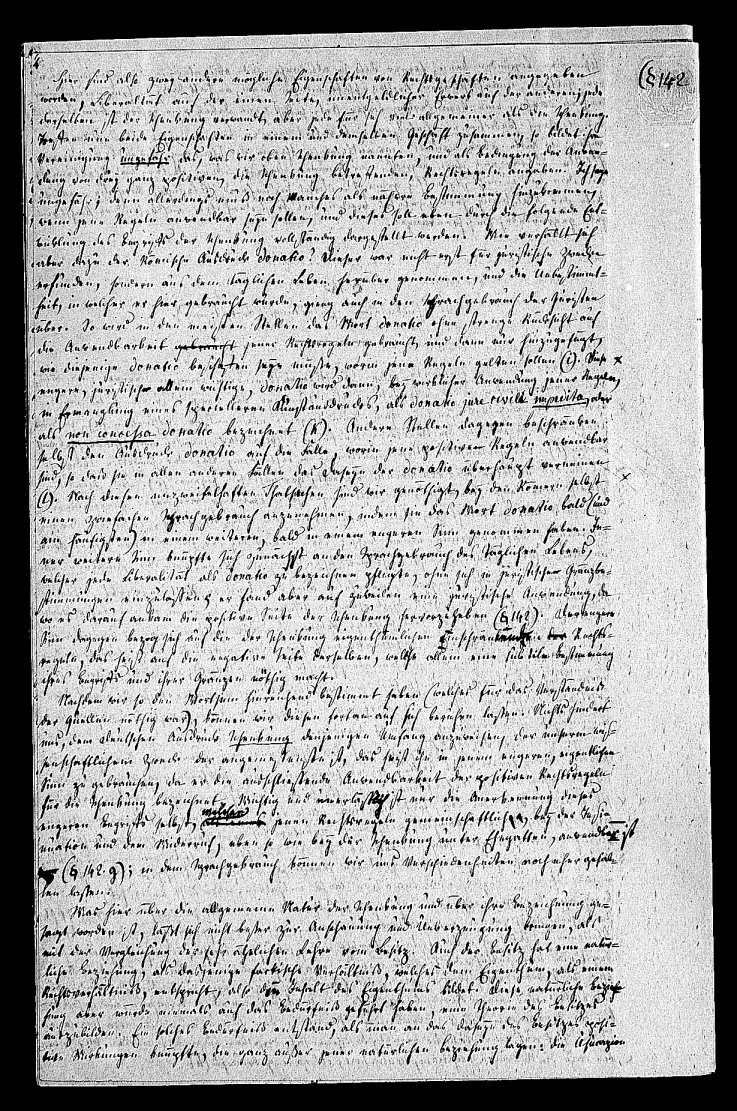 (§ 142
Hier sind also zwey andere mögliche Eigenschaften von Rechtsgeschäften angegeben
worden, Liberalität auf der einen Seite, unentgeldlicher Erwerb auf der anderen; jede
derselben ist der Schenkung verwandt, aber jede für sich viel allgemeiner als die Schenkung.
Treffen nun beide Eigenschaften in einem und demselben Geschäft zusammen, so bildet ihre
Vereinigung ungefähr das, was wir oben Schenkung nannten, und als Bedingung der Anwen-
dung von drey ganz positiven, die Schenkung betreffenden, Rechtsregeln angaben. Ich sage
ungefähr; denn allerdings muß noch Manches als nähere Bestimmung hinzukommen,
wenn jene Regeln anwendbar seyn sollen, und dieses soll eben durch die folgende Ent-
wicklung des Begriffs der Schenkung vollständig dargestellt werden. Wie verhält sich
aber dazu der Römische Ausdruck donatio? Dieser war nicht erst für juristische Zwecke
erfunden, sondern aus dem täglichen Leben herüber genommen, und die Unbestimmt-
heit, in welcher er hier gebraucht wurde, gieng auch in den Sprachgebrauch der Juristen
über. So wird in den meisten Stellen das Wort donatio ohne strenge Rücksicht auf
die Anwendbarkeit jener Rechtsregeln gebraucht, und dann nur hinzugefügt,
wie diejenige donatio beschaffen seyn müsse, worin jene Regeln gelten sollen (i). Diese x
engere, juristisch allein wichtige, donatio wird dann, bey wirklicher Anwendung jener Regeln,
in Ermanglung eines specielleren Kunstausdrucks, als donatio jure civili impedita, oder
als non concessa donatio bezeichnet (k). Andere Stellen dagegen beschränken
selbst den Ausdruck donatio auf die Fälle, worin jene positiven Regeln anwendbar
sind, so daß sie in allen anderen Fällen das Daseyn der donatio überhaupt verneinen x
(l). Nach diesen unzweifelhaften Thatsachen sind wir genöthigt, bey den Römern selbst
einen zweifachen Sprachgebrauch anzunehmen, indem sie das Wort donatio, bald (und
am häufigsten) in einem weiteren, bald in einem engeren Sinn genommen haben. Je-
ner weitere Sinn knüpfte sich zunächst an den Sprachgebrauch des täglichen Lebens,
welcher jede Liberalität als donatio zu bezeichnen pflegte, ohne sich in juristische Gränzbe-
stimmungen einzulassen; er fand aber auch zuweilen eine juristische Anwendung, da
wo es darauf ankam die positive Seite der Schenkung hervorzuheben (§ 142). Der engere
Sinn dagegen bezog sich auf die der Schenkung eigenthümlichen einschränkenden Rechts-
regeln, das heißt auf die negative Seite derselben, welche allein eine subtile Bestimmung
ihres Begriffs und ihrer Gränzen nöthig macht.
Nachdem wir so den Wortsinn hinreichend bestimmt haben (welches für das Verständnis
der Quellen nöthig war), können wir diesen fortan auf sich beruhen lassen. Nichts hindert
uns, dem deutschen Ausdruck Schenkung denjenigen Umfang anzuweisen, der unserem wis-
senschaftlichen Zweck der angemessenste ist, das heißt ihn in jenem engeren, eigentlichen
Sinn zu gebrauchen, da er die ausschließende Anwendbarkeit der positiven Rechtsregeln
für die Schenkung bezeichnet. Wichtig und unerlaßlich ist nur die Anerkennung dieses
engeren Begriffs selbst, welcher jenen Rechtsregeln gemeinschaftlich, bey der Insi-
nuation und dem Widerruf, eben so wie bey der Schenkung unter Ehegatten, anwendbar ist
(§ 142. g); in dem Sprachgebrauch können wir uns Verschiedenheiten noch eher gefal-
len lassen.
Was hier über die allgemeine Natur der Schenkung und über ihre Bezeichnung ge-
sagt worden ist, läßt sich nicht besser zur Anschauung und Ueberzeugung bringen, als
mit der Vergleichung der sehr ähnlichen Lehre vom Besitz. Auch der Besitz hat eine natür-
liche Beziehung, als dasjenige factische Verhältniß, welches dem Eigenthum, als einem
Rechtsverhältniß, entspricht, also den Inhalt des Eigenthums bildet. Diese natürliche Bezie-
hung aber würde niemals auf das Bedürfniß geführt haben, eine Theorie des Besitzes
auszubilden. Ein solches Bedürfniß entstand, als man an das Daseyn des Besitzes posi-
tive Wirkungen knüpfte, die ganz außer jener natürlichen Beziehung lagen: die Usucapion